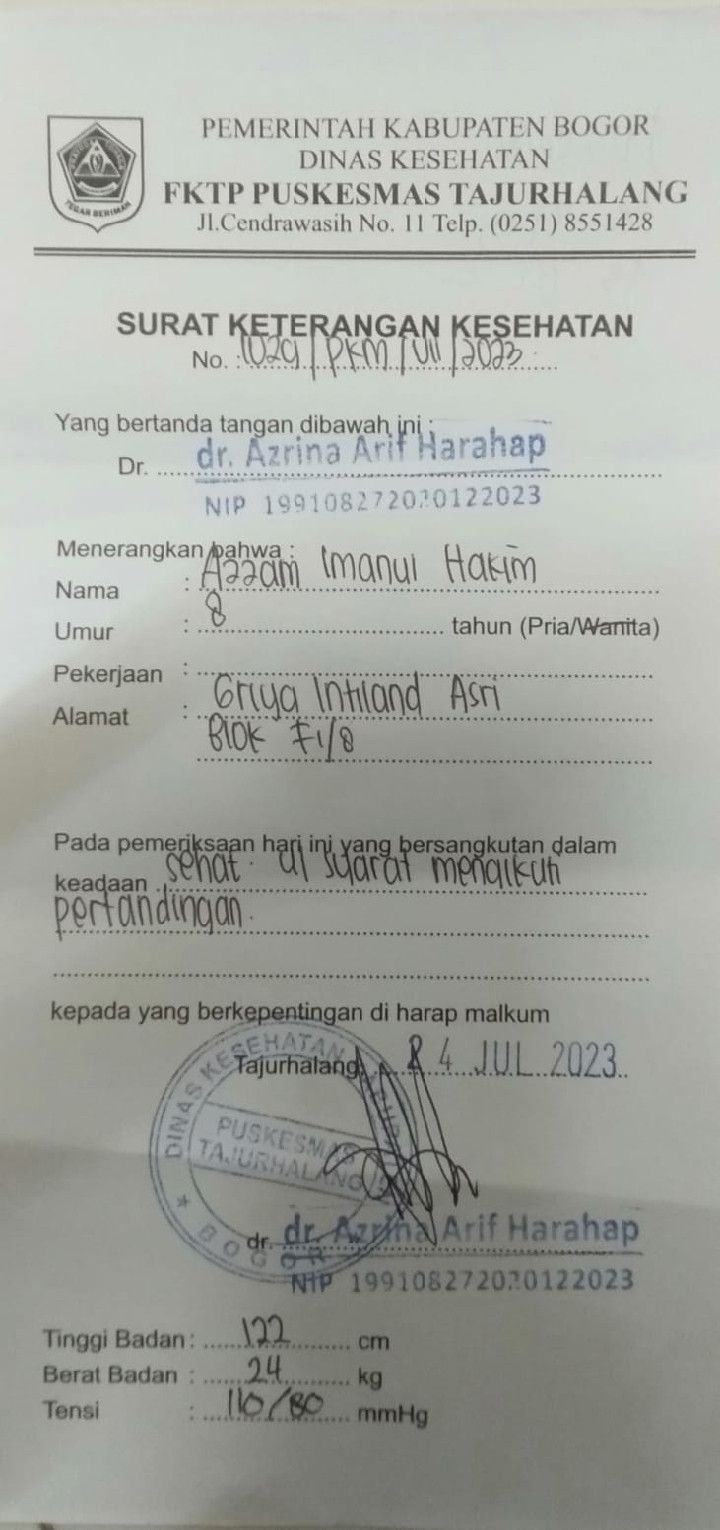 PEMERINTAH KABUPATEN BOGOR
DINAS KESEHATAN
FKTP PUSKESMAS TAJURHALANG
Jl.Cendrawasih No. 11 Telp. (0251) 8551428
TEGAR BERIMAN
SURAT KETERANGAN KESEHATAN
No. : 1029 / PKM / VII / 2023
Yang bertanda tangan dibawah ini :
Dr. dr. Azrina Arif Harahap
NIP 199108272020122023
Menerangkan bahwa :
Nama : Azzam Imanul Hakim
Umur : 8 tahun (Pria/Wanita)
Pekerjaan :
Alamat : Griya Intiland Asri
Blok F1/8
Pada pemeriksaan hari ini yang bersangkutan dalam
keadaan sehat. di syarat mengikuti
pertandingan.
kepada yang berkepentingan di harap malkum
Tajurhalang, 24 JUL 2023
DINAS KESEHATAN
PUSKESMAS
TAJURHALANG
BOGOR
dr. dr. Azrina Arif Harahap
NIP 199108272020122023
Tinggi Badan : 122 cm
Berat Badan : 24 kg
Tensi : 110/80 mmHg